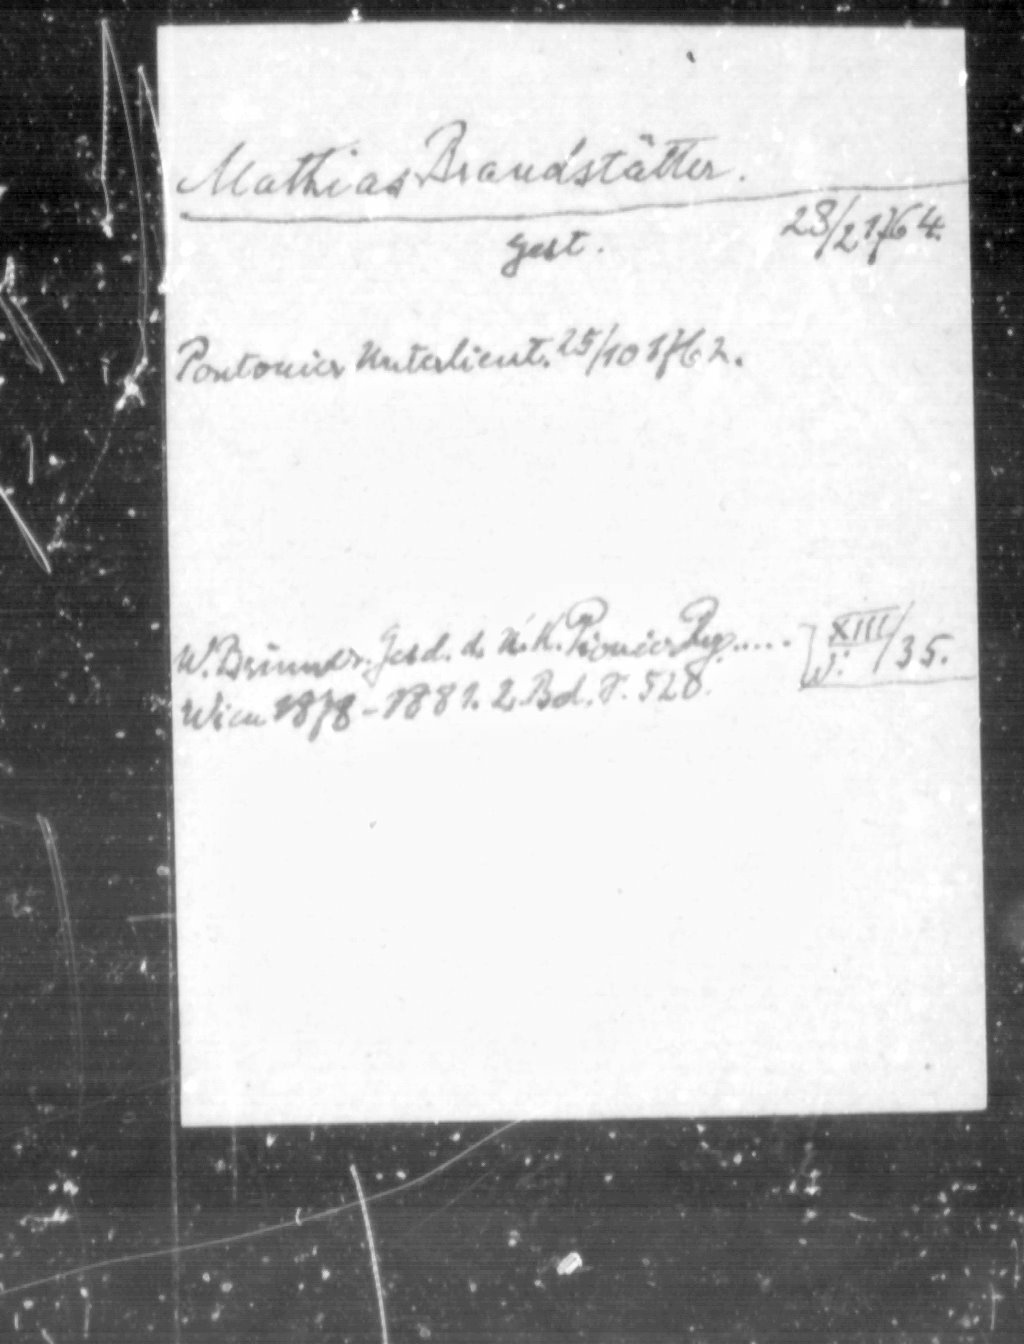 Mathias Brandstätter.
gest. 28/2 1764.
Pontonier Unterlieut. 25/10 1762.
W. Brinner. Gesch. d. K. K. Pionier Reg.....
Wien 1878-1881. 2. Bd. S. 528.
XIII/35.
W: